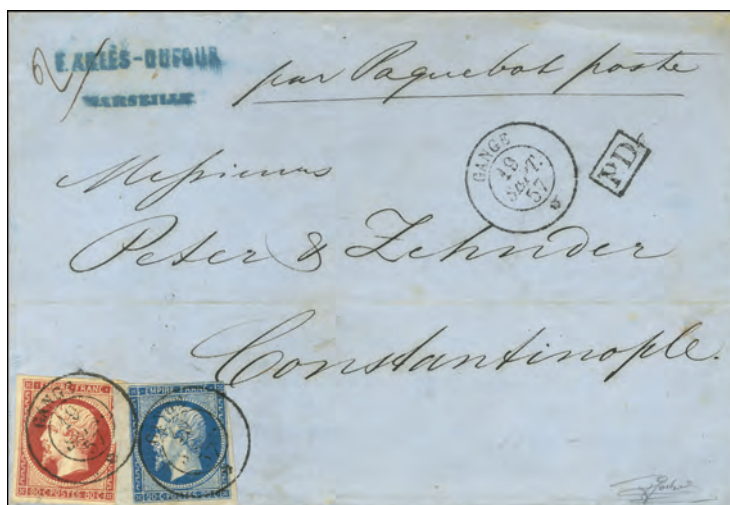 F. ARLÈS-DUFOUR
MARSEILLE
par Paquebot poste
GANGE
19
SEPT.
57
PD
Messieurs
Peter & Zehnder
Constantinople.
EMPIRE FRANC
EMPIRE FRANC
GANGE
80·C·POSTES·80·C
20·C·POSTES·20·C